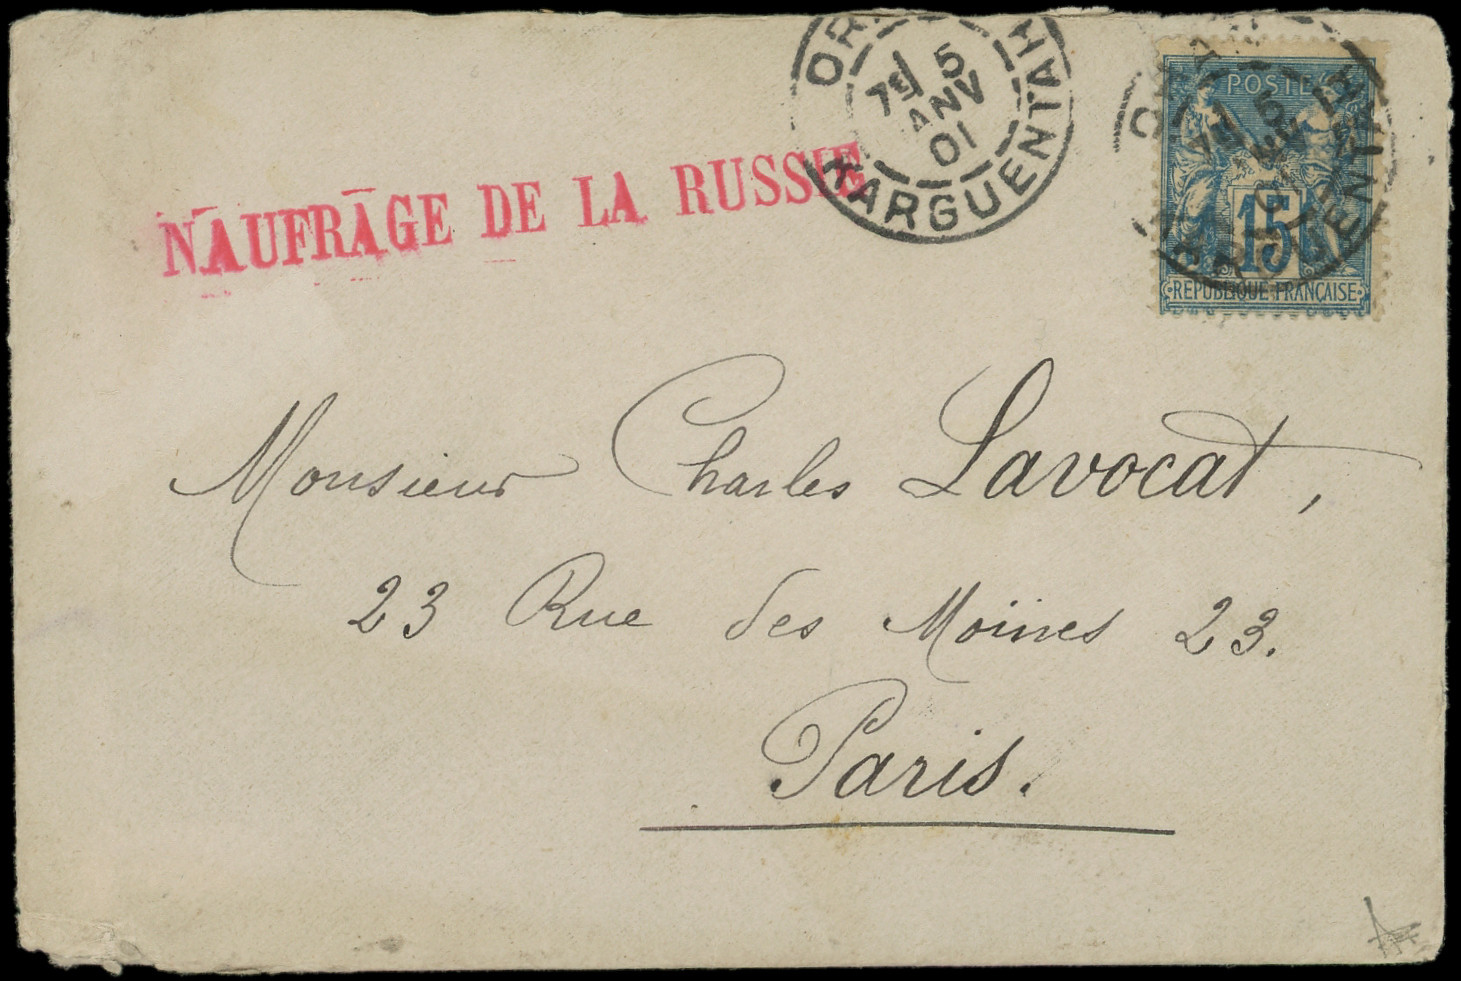 NAUFRAGE DE LA RUSSIE
OR
7E 5
JANV
01
KARGUENTAH
POSTES
15
REPUBLIQUE FRANÇAISE
Monsieur Charles Lavocat,
23 Rue des Moines 23.
Paris.